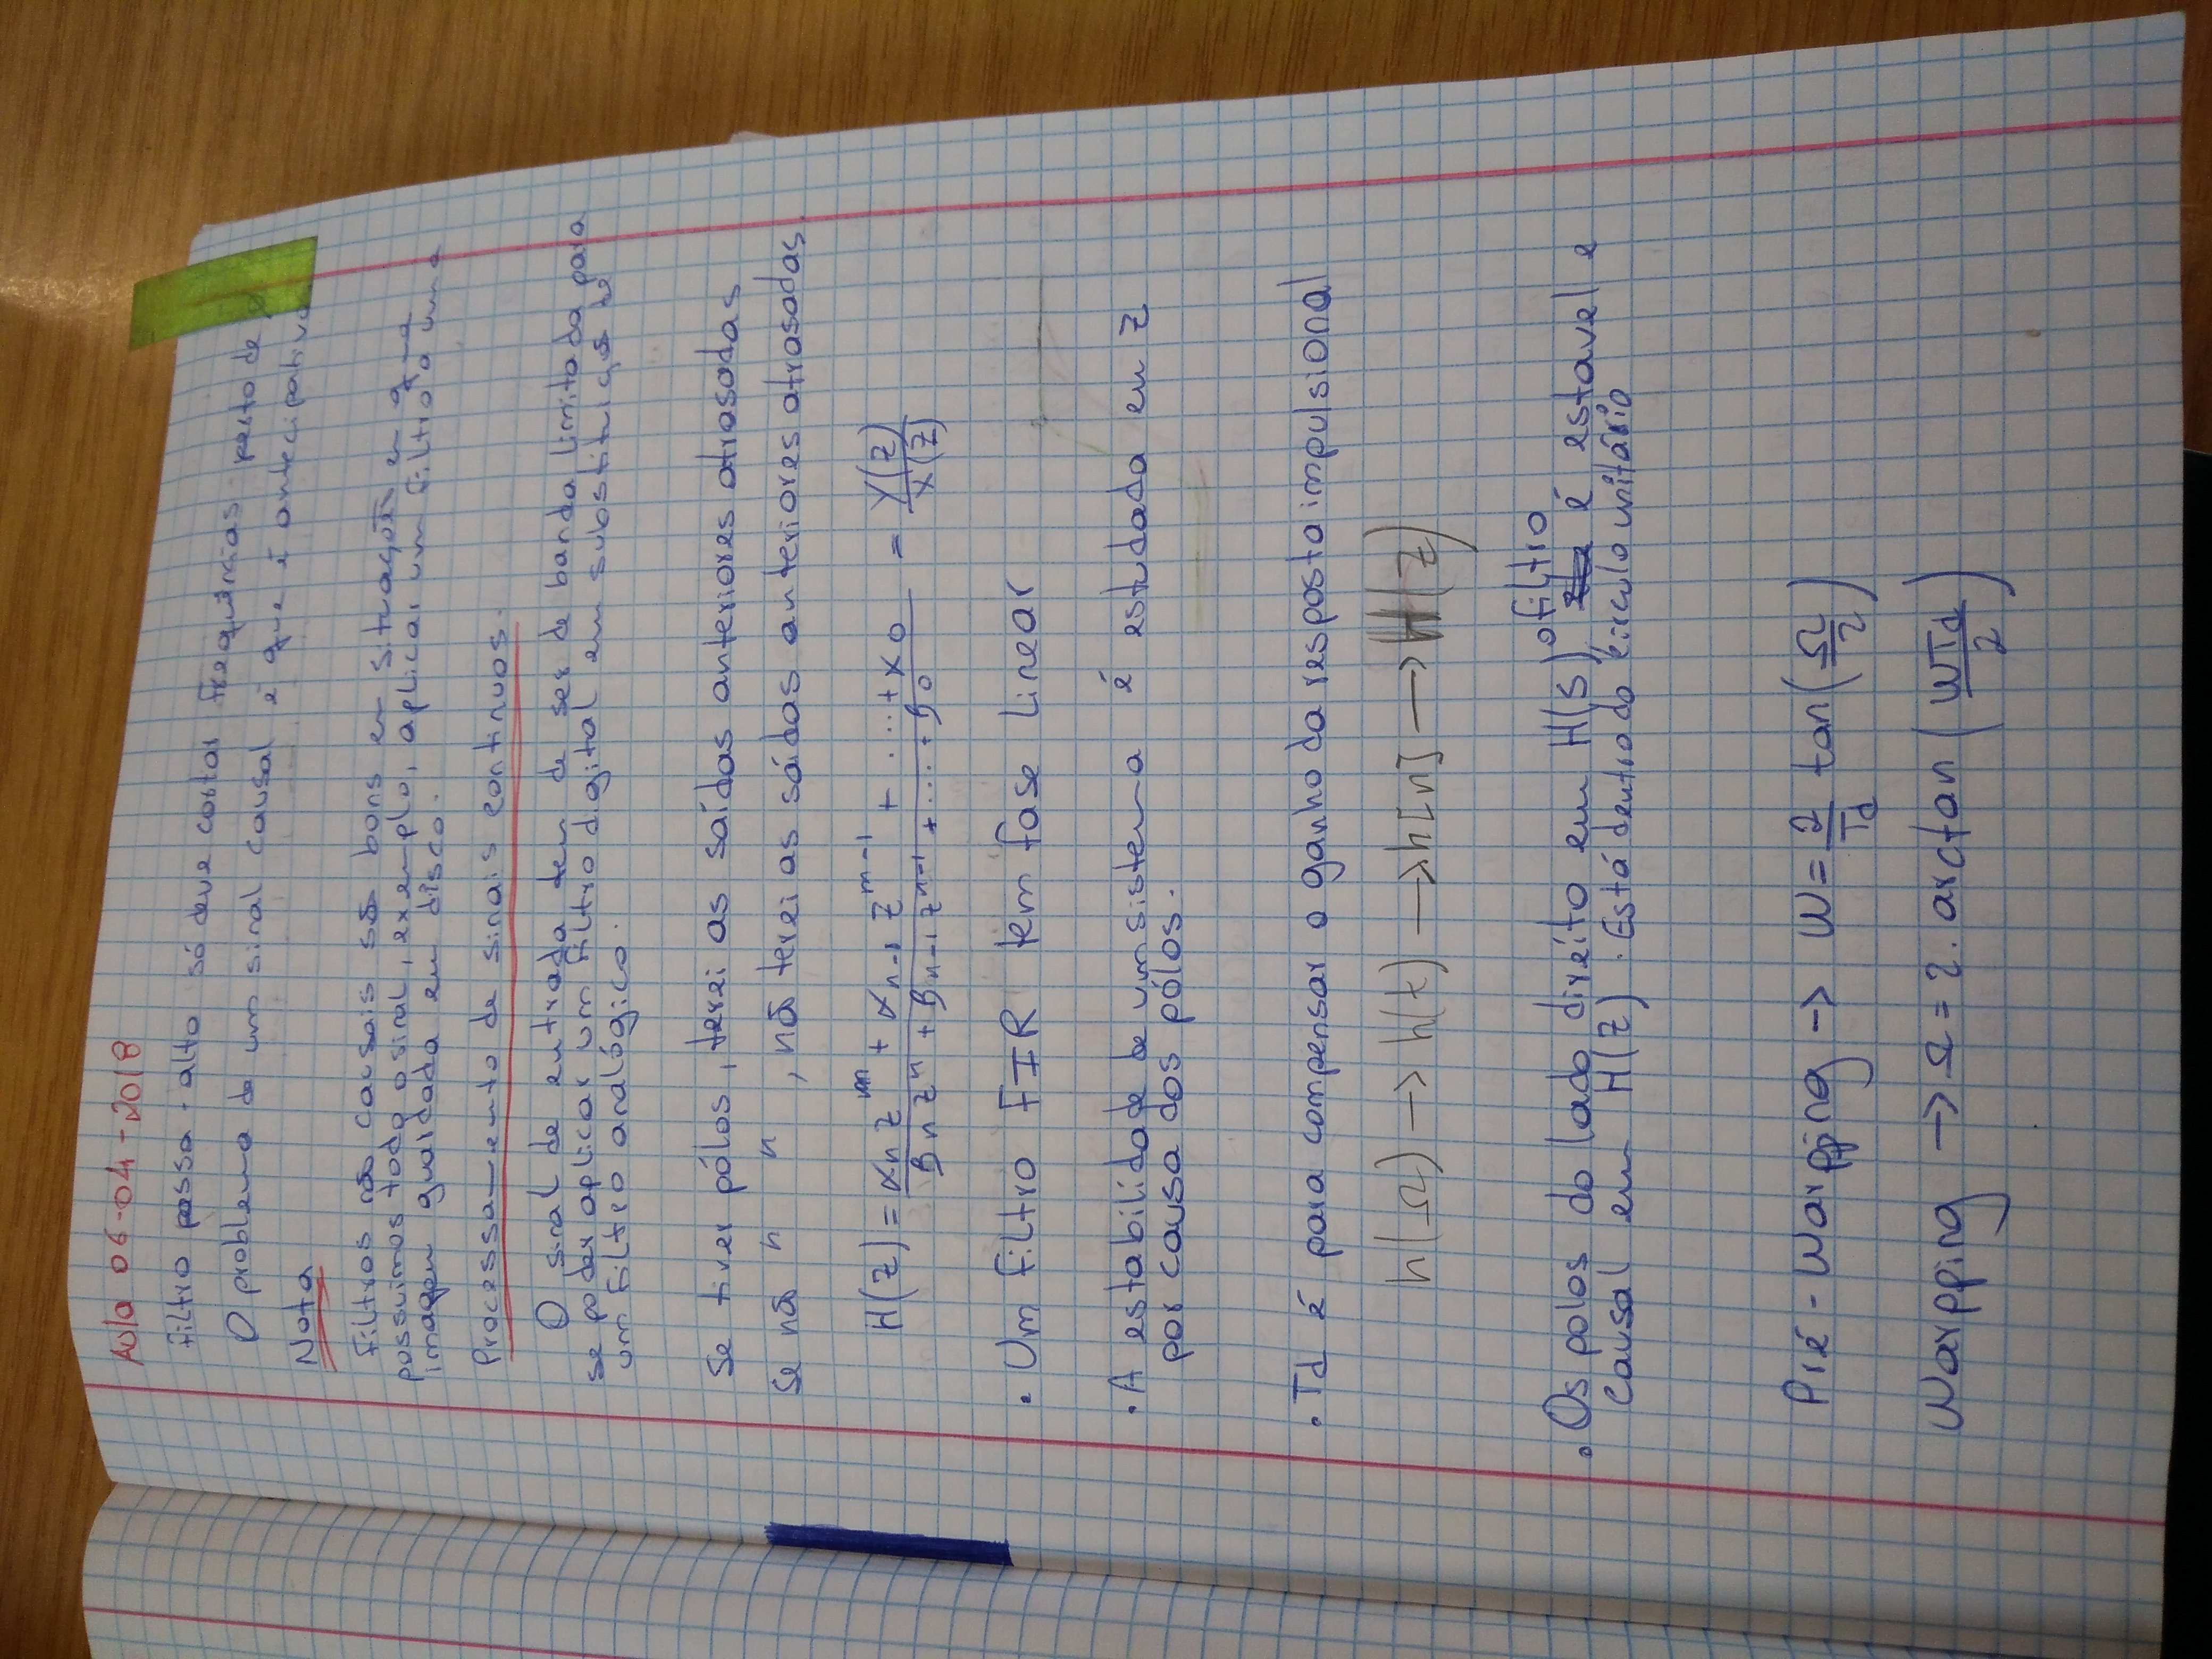 Aula 06-04-2018
Filtro passa-alto só deve cortar frequências perto de
O problema de um sinal causal é que é antecipativo
Nota
Filtros não causais são bons em situações em que
possuimos todo o sinal, exemplo, aplicar um filtro a uma
imagem guardada em disco.
Processamento de sinais continuos.
O sinal de entrada tem de ser de banda limitada para
se poder aplicar um filtro digital em substituição de
um filtro analógico.
Se tiver pólos, terei as saídas anteriores atrasadas
Se não " ", não terei as saídas anteriores atrasadas.
H(z) = αn z^m + αn-1 z^m-1 + ... + α0 / Bn z^n + Bn-1 z^n-1 + ... + B0 = Y(z) / X(z)
• Um filtro FIR tem fase linear
• A estabilidade de um sistema é estudada em z
por causa dos pólos.
• Td é para compensar o ganho da resposta impulsional
h(Ω) → h(t) → h[n] → H(z)
• Os polos do lado direito em H(s), o filtro é estavel e
causal em H(z). Está dentro do circulo unitário
Pré-Warpping → W = 2/Td tan(Ω/2)
Warpping → Ω = 2. arctan(WTd/2)